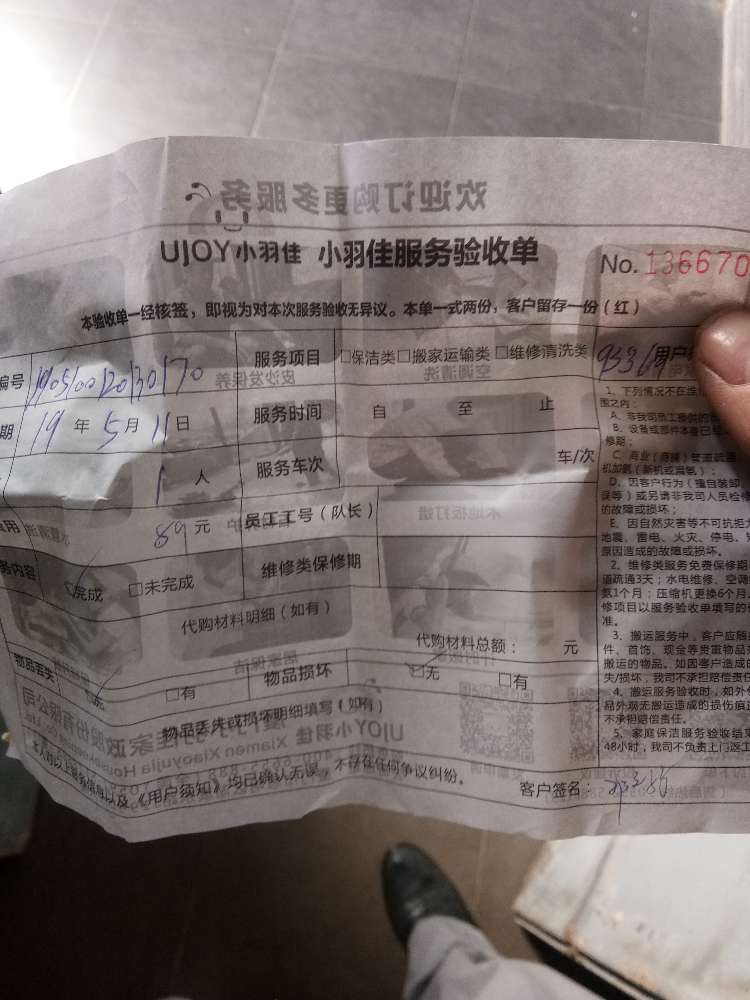 欢迎订购更多服务
UJOY小羽佳 小羽佳服务验收单
No. 136670
本验收单一经核签，即视为对本次服务验收无异议。本单一式两份，客户留存一份（红）
编号 服务项目 □保洁类□搬家运输类□维修清洗类
期 19 年 5 月 11 日 服务时间 自 至 止
1 人 服务车次 车/次
费用 89 元 员工工号（队长）
务内容 完成 □未完成 维修类保修期
代购材料明细（如有） 代购材料总额： 元
物品丢失 无 □有 物品损坏 无 □有
物品丢失或损坏明细填写（如有）
本人对以上服务信息以及《用户须知》均已确认无误，不存在任何争议纠纷。
客户签名：
用户
1、下列情况不在
围之内：
A、非我司员工提供的
B、设备或部件本身已
修期；
D、因客户行为（擅自装卸
保等）或另请非我司人员检修
的故障或损坏；
E、因自然灾害等不可抗拒
地震、雷电、火灾、停电、
原因造成的故障或损坏。
2、维修类服务免费保修期
道疏通3天；水电维修、空调
氨1个月；压缩机更换6个月
修项目以服务验收单填写的
准。
3、搬运服务中，客户应随
件、首饰、现金等贵重物品
搬运的物品。如因客户造成
失/损坏，我司不承担赔偿责任
4、搬运服务验收时，如外
品外观无搬运造成的损伤痕
不承担赔偿责任。
5、家庭保洁服务验收结束
48小时，我司不负责上门返工